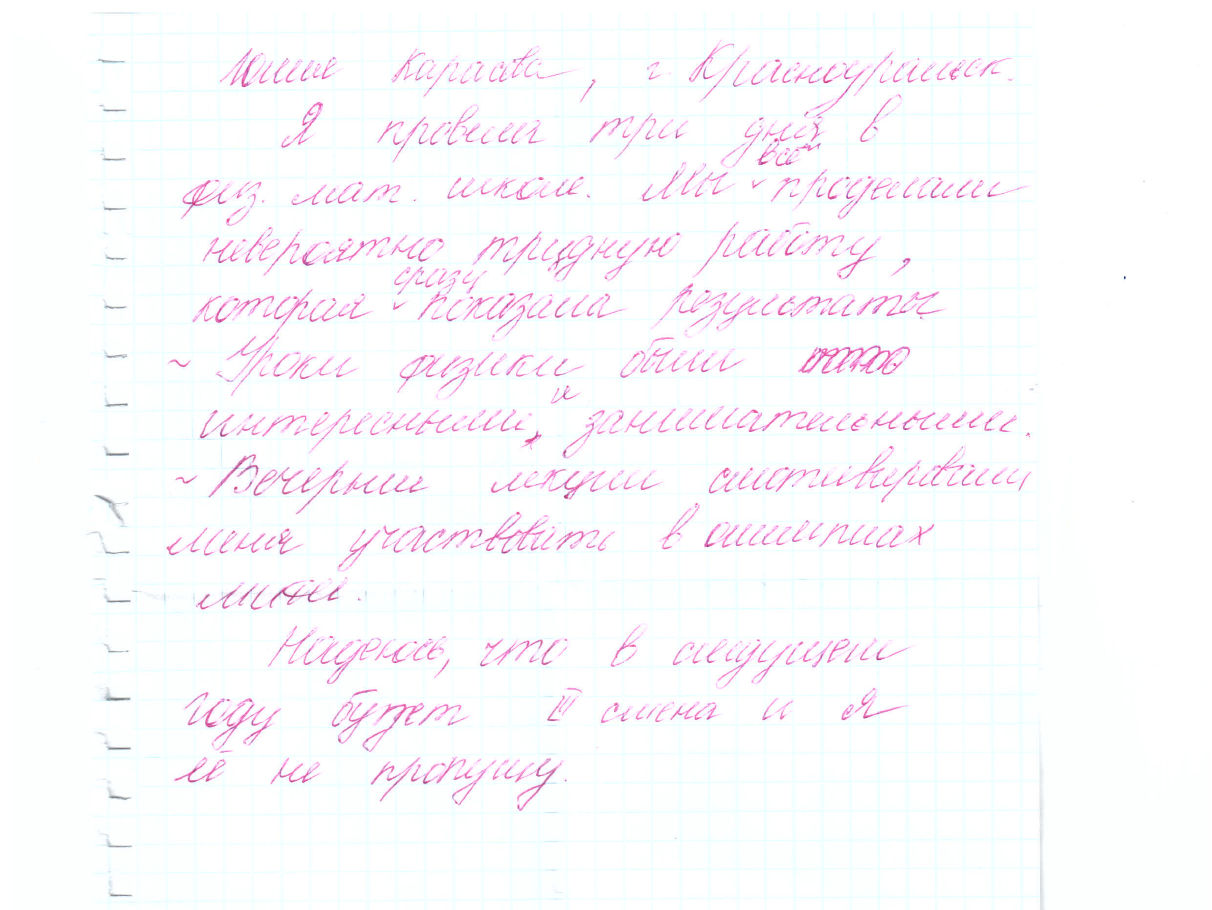 Юлия Карасева, г. Красноуральск.
Я провела три дня в
физ. мат. школе. Мы все проделали
невероятно трудную работу,
которая сразу показала результаты.
~ Уроки физики были
интересными, и занимательными.
~ Вечерние лекции смотивировали
меня участвовать в олимпиадах

Надеюсь, что в следующем
году будет III смена и я
её не пропущу.